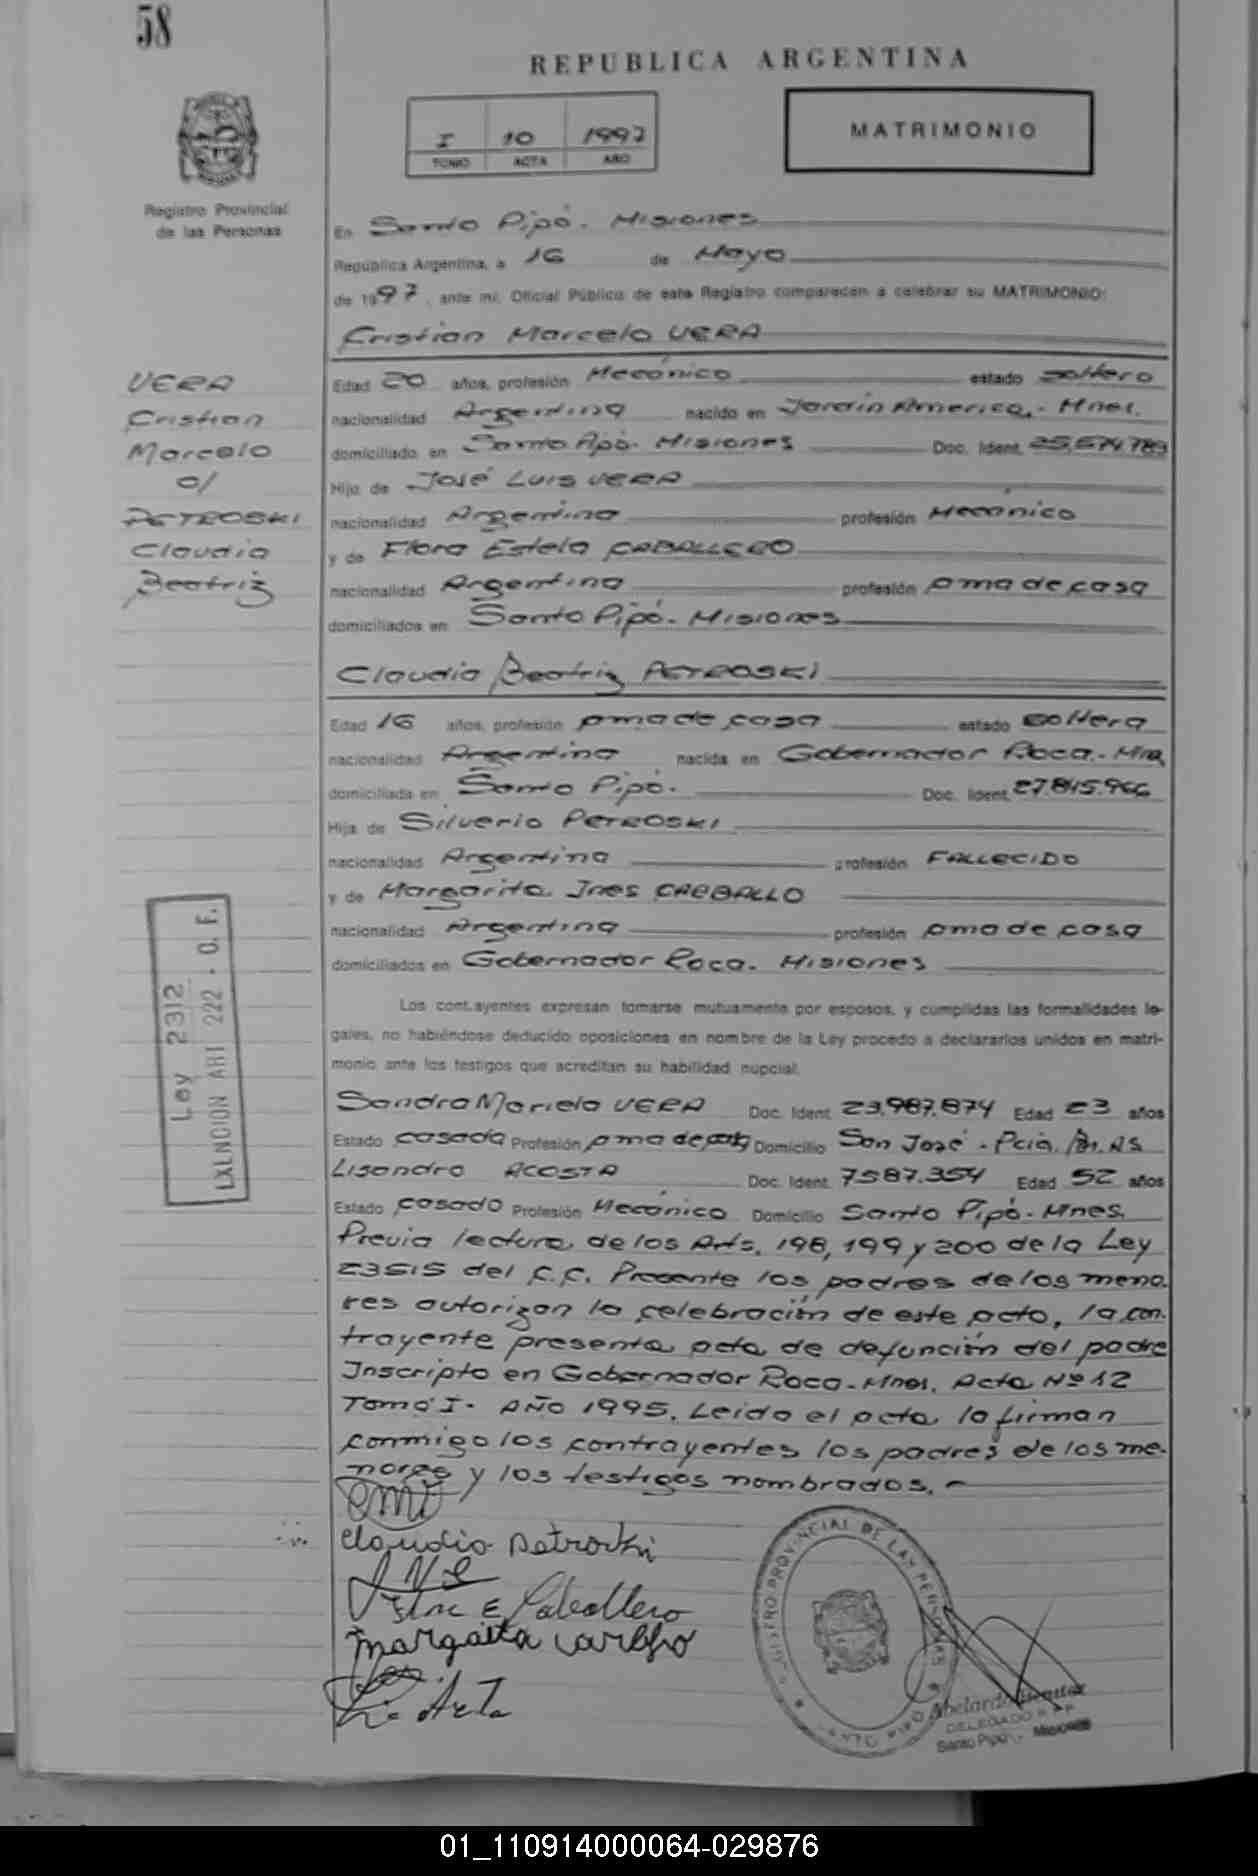 58
REPUBLICA ARGENTINA
I 10 1997
TOMO ACTA AÑO
MATRIMONIO
Registro Provincial
de las Personas
En Santo Pipó. Misiones
República Argentina, a 16 de Mayo
de 1997, ante mí, Oficial Público de este Registro comparecen a celebrar su MATRIMONIO:
Cristian Marcelo VERA
VERA
Cristian
Marcelo
c/
PETROSKI
Claudia
Beatriz
Edad 20 años, profesión Mecánico estado soltero
nacionalidad Argentina nacido en Jardín America.- Mnes.
domiciliado en Santo Pipó. Misiones Doc. Ident. 25.574.789
Hijo de José Luis VERA
nacionalidad Argentina profesión Mecánico
y de Flora Estela CABALLERO
nacionalidad Argentina profesión ama de casa
domiciliados en Santo Pipó. Misiones
Claudia Beatriz PETROSKI
Edad 16 años, profesión ama de casa estado soltera
nacionalidad Argentina nacida en Gobernador Roca.- Mnes
domiciliada en Santo Pipó. Doc. Ident. 27.815.966
Hija de Silverio PETROSKI
nacionalidad Argentina profesión FALLECIDO
y de Margarita Ines CARBALLO
nacionalidad Argentina profesión ama de casa
domiciliados en Gobernador Roca. Misiones
Ley 2312
EXENCION ART 222 - O. F.
Los contrayentes expresan tomarse mutuamente por esposos, y cumplidas las formalidades le-
gales, no habiéndose deducido oposiciones en nombre de la Ley procedo a declararlos unidos en matri-
monio ante los testigos que acreditan su habilidad nupcial.
Sandra Mariela VERA Doc. Ident. 23.987.874 Edad 23 años
Estado casada Profesión ama de casa Domicilio San José - Pcia. Bs. As
Lisandro ACOSTA Doc. Ident. 7587.354 Edad 52 años
Estado casado Profesión Mecánico Domicilio Santo Pipó - Mnes.
Previa lectura de los Arts. 198, 199 y 200 de la Ley
23515 del C.C. Presente los padres de los meno-
res autorizan la celebración de este acto, la con-
trayente presenta acta de defunción del padre
Inscripto en Gobernador Roca-Mnes. Acta Nº 12
Tomo I- AÑO 1995. Leida el acta, la firman
conmigo los contrayentes los padres de los me-
nores y los testigos nombrados. -
Claudia Petroski
Flora E Caballero
Margarita Carballo
REGISTRO PROVINCIAL DE LAS PERSONAS
SANTO PIPO
Abelardo Benitez
DELEGADO R P P
Santo Pipó - Misiones
01_110914000064-029876